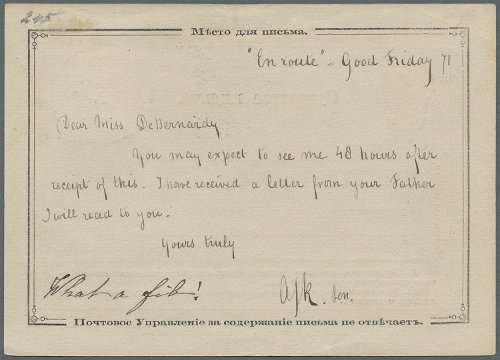 245
Мѣсто для письма.
"En route" - Good Friday 71
Dear Miss DeBernardy
You may expect to see me 48 hours after
receipt of this. I have received a letter from your Father
I will read to you.
Yours truly
What a fib! Ajk. sen.
Почтовое Управленіе за содержаніе письма не отвѣчаетъ.